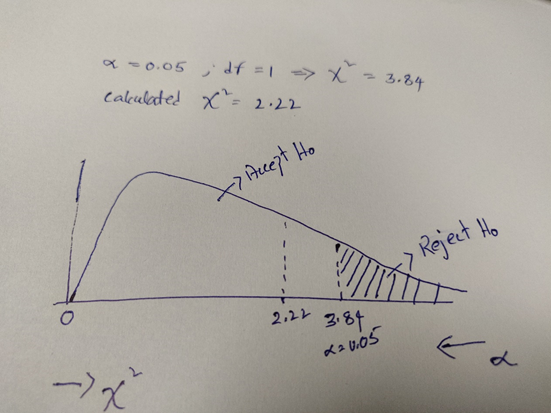 α = 0.05 ; df = 1 ⇒ χ² = 3.84
calculated χ² = 2.22
Accept Ho
Reject Ho
0
2.22
3.84
α=0.05
← α
→ χ²